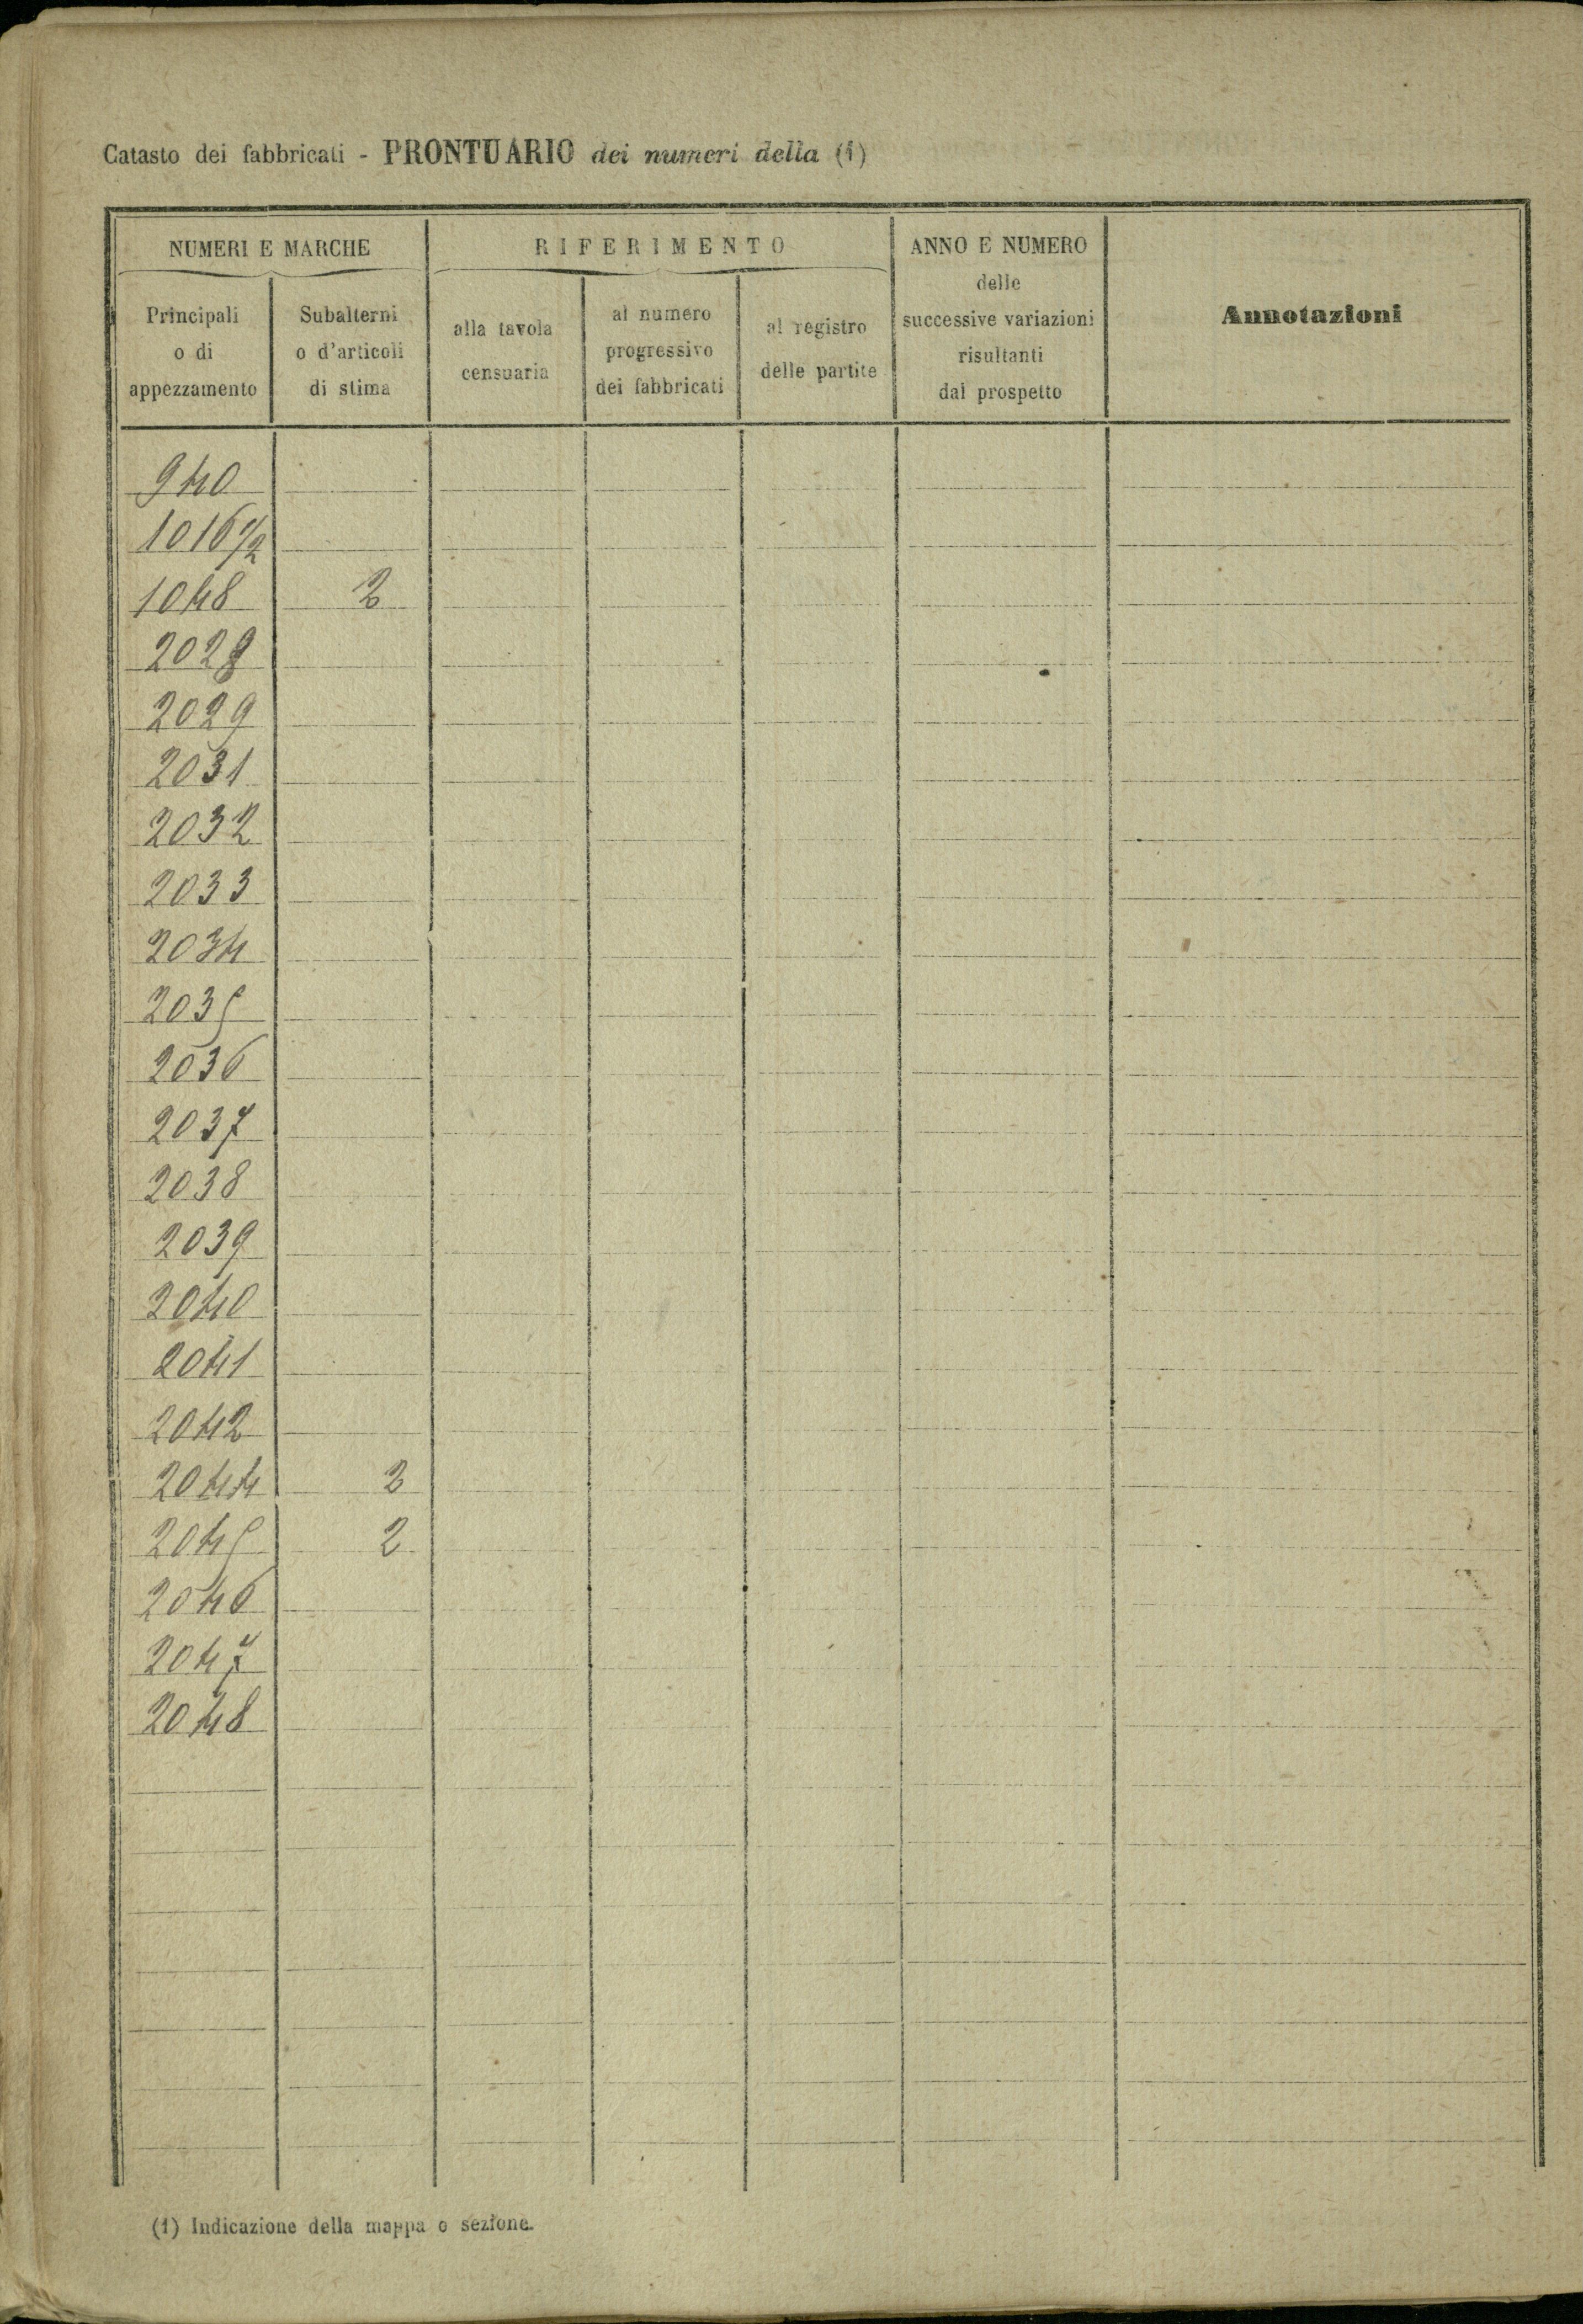 Catasto dei fabbricati - PRONTUARIO dei numeri della (1)
NUMERI E MARCHE
RIFERIMENTO
ANNO E NUMERO
delle
successive variazioni
risultanti
dal prospetto
Annotazioni
Principali
o di
appezzamento
Subalterni
o d'articoli
di stima
alla tavola
censuaria
al numero
progressivo
dei fabbricati
al registro
delle partite
940
1016 1/2
1048 2
2028
2029
2031
2032
2033
2034
2035
2036
2037
2038
2039
2040
2041
2042
2044 2
2045 2
2046
2047
2048
(1) Indicazione della mappa o sezione.